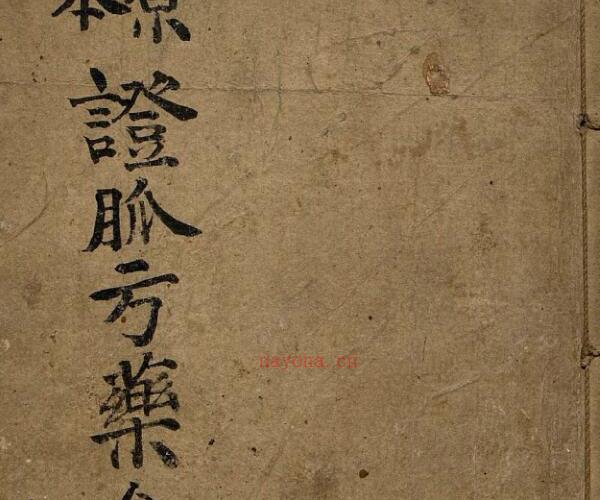 證脈方藥
nayona.cn